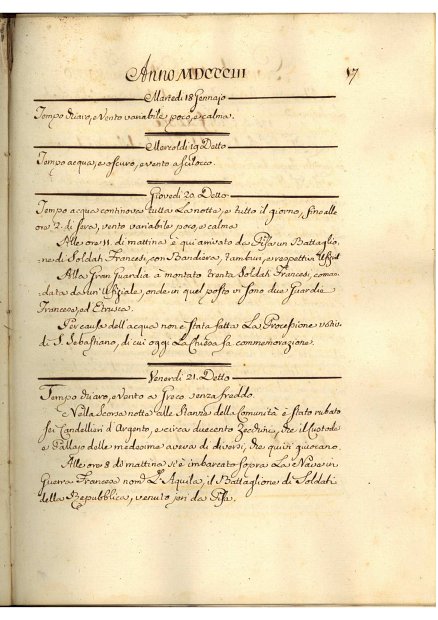 Anno MDCCCIII 17
Martedi 18 Gennajo
Tempo chiaro, e vento variabile, poco, e calma.
Mercoldi 19 Detto
Tempo acqua, e oscuro, e vento a scilocco.
Giovedi 20. Detto
Tempo acqua continova tutta La notte, e tutto il giorno, fino alle
ore 2. di sera, vento variabile, poco, e calma
Alle ore 11. di mattina è qui arrivato da Pisa un Battaglio,
ne di Soldati Francesi, con Bandiera, Tamburi, e respettivi Uffizli
Alla Gran Guardia à montato trenta Soldati Francesi, coman,
data da un' Uffiziale, onde in quel posto vi sono due Guardie
Francese, ed Etrusca.
Per causa dell' acqua non è stata fatta La Processione votiva
di S. Sebastiano, di cui oggi La Chiesa fa commemorazione.
Venerdi 21. Detto
Tempo chiaro, e vento a Greco senza freddo.
Nella scorsa notte alle Stanze della Comunità è stato rubato
sei Candellieri d'Argento, e circa duecento Zecchini, che il Custode
e Pallajo delle medesime aveva di diversi, che quivi giuocano.
Alle ore 8 di mattina si è imbarcato sopra La Nave in
Guerra Francese nomta L'Aquila, il Battaglione di Soldati
della Repubblica, venuto jeri da Pisa.